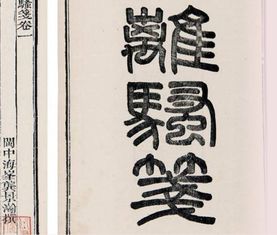 離騷箋
閩中海峯龔景瀚撰
騷箋卷一